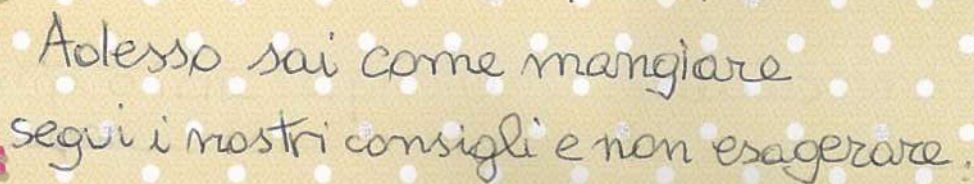 Adesso sai come mangiare
segui i nostri consigli e non esagerare.